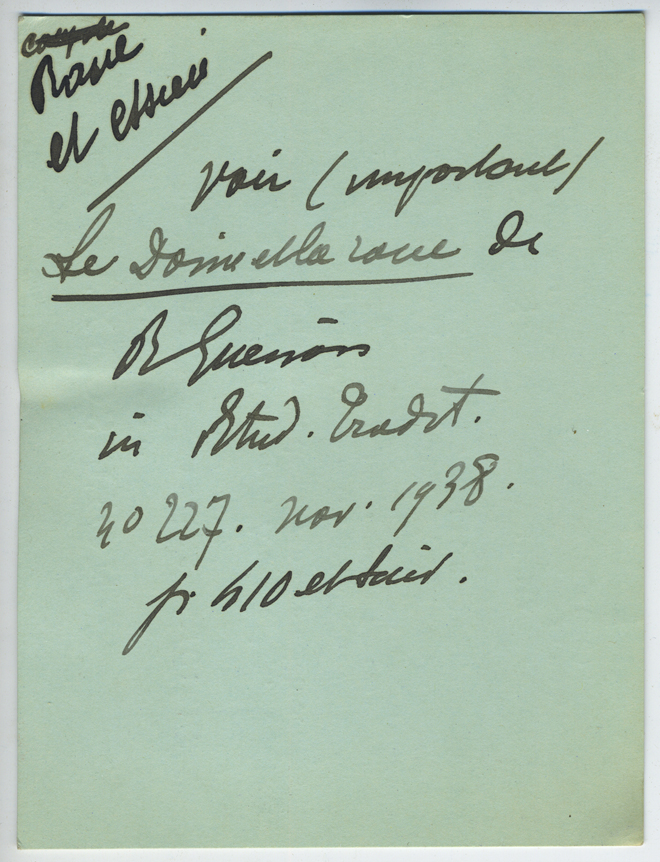 Roue
et essieu
voir (important)
Le Dôme et la roue de
R Guénon
in Etud. Tradit.
no 227. nov. 1938.
p. 410 et suiv.